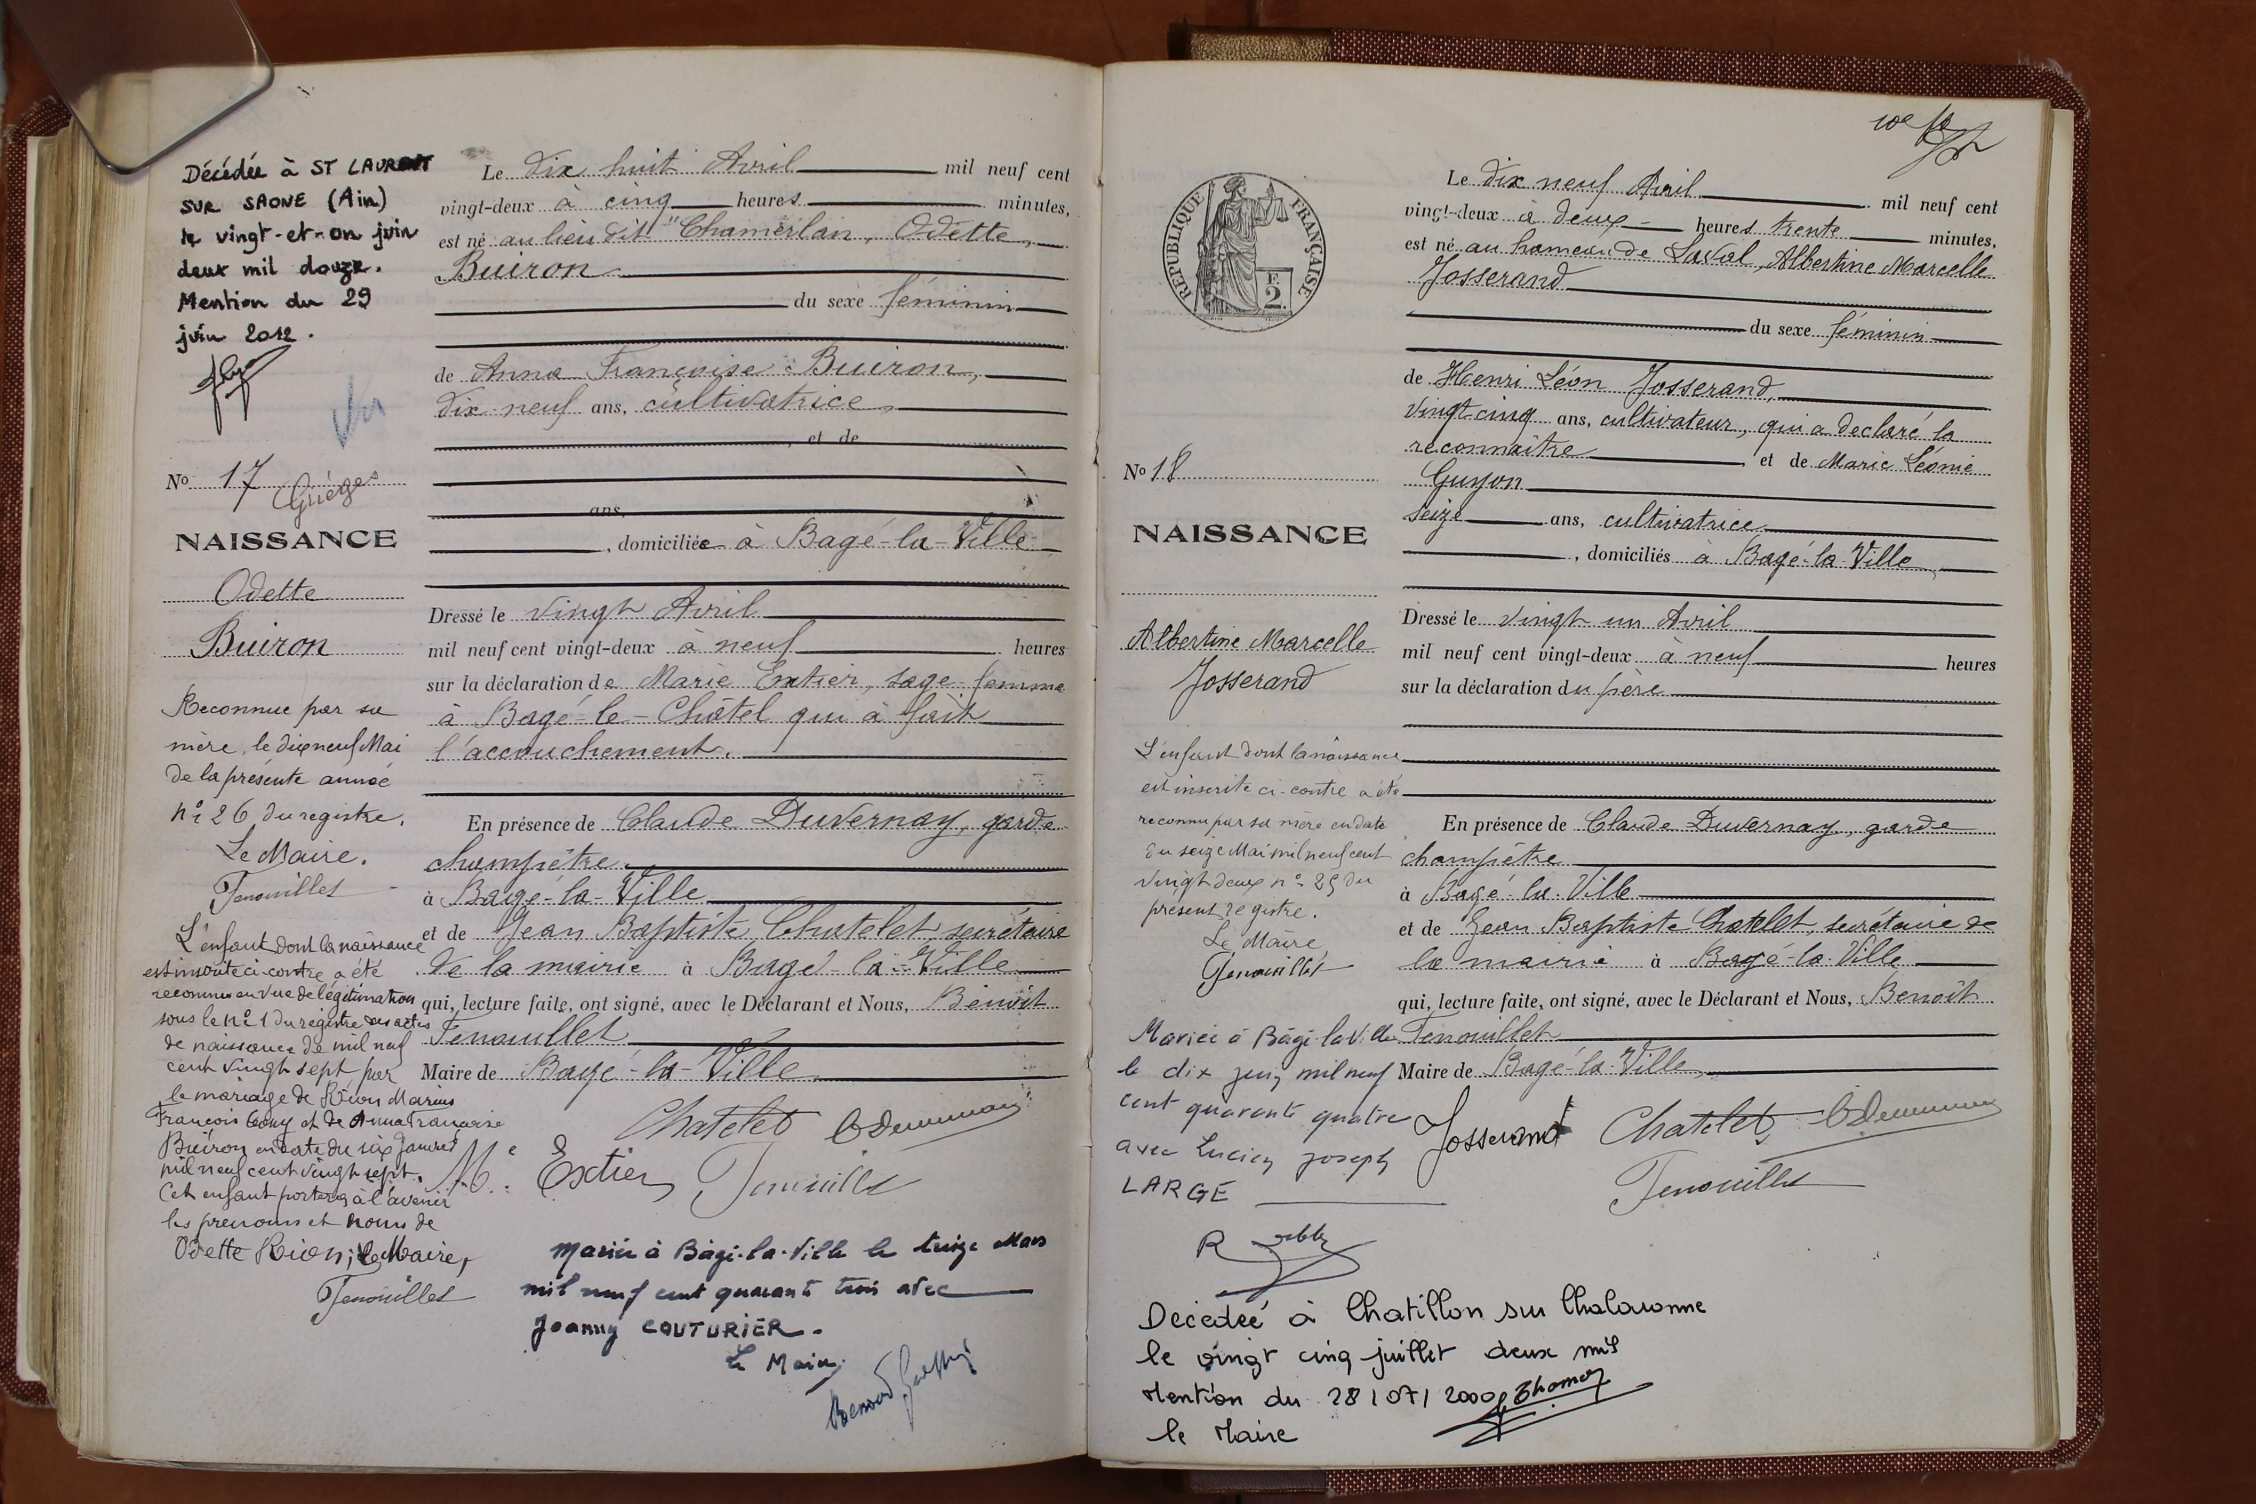 Décédée à ST LAURENT
SUR SAONE (Ain)
le vingt-et-un juin
deux mil douze.
Mention du 29
juin 2012.
No 17
Grièges
NAISSANCE
Odette
Buiron
Reconnue par sa
mère, le dix neuf Mai
de la présente année
n° 26 du registre.
Le Maire.
Fenouillet
L'enfant dont la naissance
est inscrite ci-contre a été
reconnu en vue de légitimation
sous le n° 1 du registre des actes
de naissance de mil neuf
cent vingt sept par
le mariage de Rion Marius
François et de Anna Française
Buiron en date du six Janvier
mil neuf cent vingt sept.
Cet enfant portera à l'avenir
les prenoms et noms de
Odette Rion, Le Maire,
Fenouillet
Le dix huit Avril mil neuf cent
vingt-deux à cinq heures minutes,
est né au lieu dit "Chamerlan, Odette,
Buiron
du sexe féminin
de Anna Françoise Buiron,
dix neuf ans, cultivatrice,
, et de
ans,
, domiciliée à Bagé-la-Ville
Dressé le vingt Avril
mil neuf cent vingt-deux à neuf heures
sur la déclaration de Marie Extier, sage femme
à Bagé-le-Châtel qui à fait
l'accouchement.
En présence de Claude Duvernay, garde
champêtre
à Bagé-la-Ville
et de Jean Baptiste Chatelet, secrétaire
de la mairie à Bagé-la-Ville
qui, lecture faite, ont signé, avec le Déclarant et Nous, Benoît
Fenouillet
Maire de Bagé-la-Ville
Chatelet
Me Extier Fenouillet
Mariée à Bâgé-la-Ville le treize Mars
mil neuf cent quarante trois avec
Joanny COUTURIER.
Le Maire,
RÉPUBLIQUE FRANÇAISE
F.
2
No 18
NAISSANCE
Albertine Marcelle
Josserand
L'enfant dont la naissance
est inscrite ci-contre a été
reconnu par sa mère en date
du seize Mai mil neuf cent
vingt deux n° 25 du
présent registre.
Le Maire
Fenouillet
Mariée à Bâgé-la-Ville
le dix juin mil neuf
cent quarante quatre
avec Lucien Joseph
LARGE
Le dix neuf Avril mil neuf cent
vingt-deux à deux heures trente minutes,
est né au hameau de Laval, Albertine Marcelle
Josserand
du sexe féminin
de Henri Léon Josserand,
vingt cinq ans, cultivateur, qui a declaré la
reconnaître et de Marie Léonie
Guyon
seize ans, cultivatrice
, domiciliés à Bagé-la-Ville,
Dressé le vingt un Avril
mil neuf cent vingt-deux à neuf heures
sur la déclaration du père
En présence de Claude Duvernay, garde
champêtre
à Bagé-la-Ville
et de Jean Baptiste Chatelet, secrétaire de
la mairie à Bagé-la-Ville
qui, lecture faite, ont signé, avec le Déclarant et Nous, Benoît
Fenouillet
Maire de Bagé-la-Ville
Josserand Chatelet
Fenouillet
Décédée à Chatillon sur Chalaronne
le vingt cinq juillet deux mil
Mention du 28/07/2000
le Maire